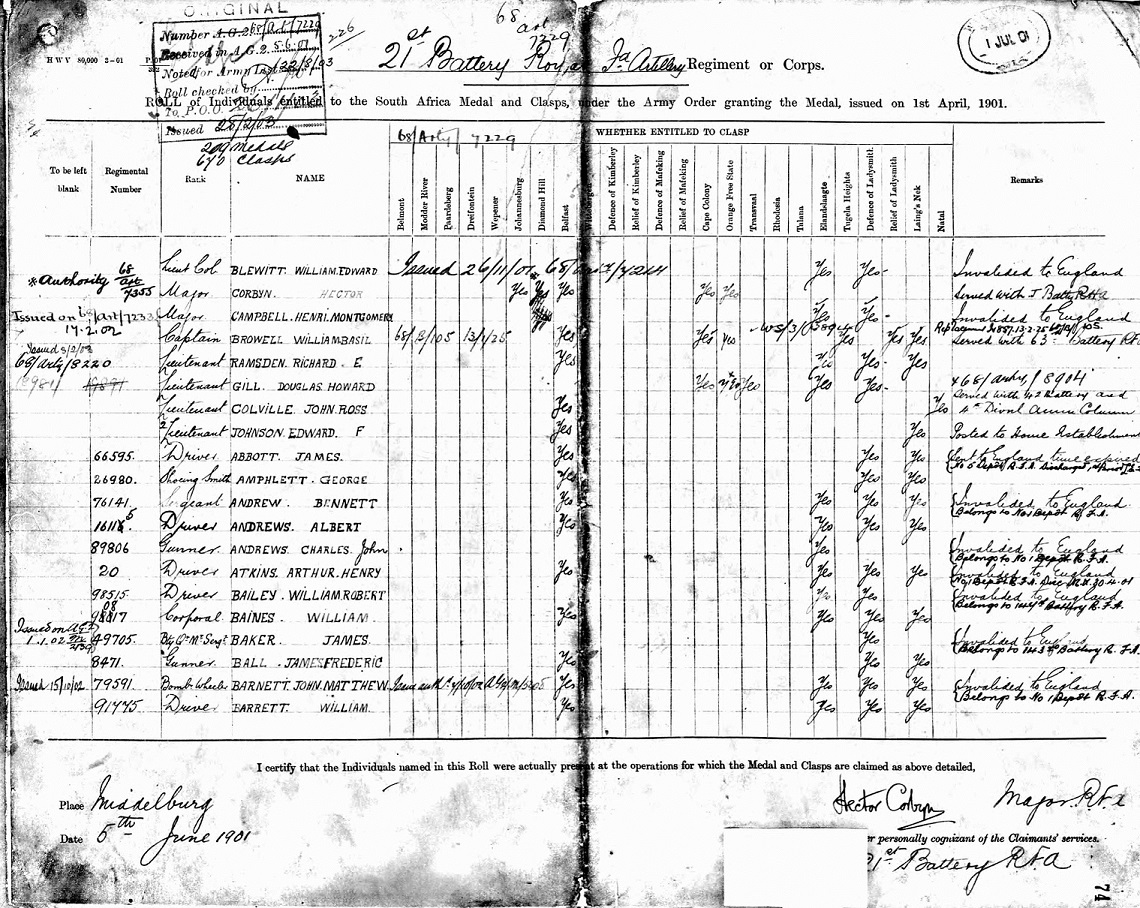 ORIGINAL
Number A.G.2 68/Art/7229
Received in A.G.2 5.6.01
Noted for Army List 22/8/03
Roll checked by
To P.O.O.
Issued 28/2/03
226
68
Art
7229
1 JUL 01
H W V 80,000 2—01
21st Battery Royal Fd Artillery Regiment or Corps.
ROLL of Individuals entitled to the South Africa Medal and Clasps, under the Army Order granting the Medal, issued on 1st April, 1901.
209 Medals
670 Clasps
68/Arty/7229
WHETHER ENTITLED TO CLASP
To be left blank
Regimental Number
Rank
NAME
Belmont
Modder River
Paardeberg
Dreifontein
Wepener
Johannesburg
Diamond Hill
Belfast
Wittebergen
Defence of Kimberley
Relief of Kimberley
Defence of Mafeking
Relief of Mafeking
Cape Colony
Orange Free State
Transvaal
Rhodesia
Talana
Elandslaagte
Tugela Heights
Defence of Ladysmith
Relief of Ladysmith
Laing's Nek
Natal
Remarks
Lieut Col BLEWITT. WILLIAM. EDWARD Issued 26/11/01 68/Art/7244 Yes Yes- Invalided to England
*Authority 68 Art 7355 Major CORBYN. HECTOR Yes Yes Yes Yes Yes Served with J Batty RHA
Issued on 68/Art/7233 17.2.02 Major CAMPBELL. HENRI. MONTGOMERY Yes Yes- Invalided to England
Captain BROWELL WILLIAM BASIL 68/B/105 13/1/25 Yes Yes Yes Yes Yes Yes Served with 63rd Battery RFA
Issued 3/2/03 68/Arty/8220 Lieutenant RAMSDEN. RICHARD. E Yes Yes Yes- Yes
Lieutenant GILL. DOUGLAS. HOWARD Yes Yes Yes Yes Yes- *68/Arty/8904
Lieutenant COLVILLE. JOHN. ROSS Yes Yes Served with 42 Battery and 4th Divnl Ammn Column
2/Lieutenant JOHNSON. EDWARD. F Yes Yes Posted to Home Establishment
66595. Driver ABBOTT JAMES. Yes Yes Yes Sent to England time expired
26980. Shoeing Smith AMPHLETT. GEORGE Yes Yes Yes
76141. Sergeant ANDREW. BENNETT Yes Yes Yes Yes Invalided to England Belongs to No 1 Depôt R.F.A.
Driver ANDREWS. ALBERT Yes Yes Yes Yes
89806 Gunner. ANDREWS. CHARLES. John Yes Invalided to England Belongs to No 1 Depôt R.F.A.
20 Driver ATKINS. ARTHUR. HENRY Yes Yes Yes Yes Invalided to England
98515. Driver BAILEY. WILLIAM. ROBERT Yes Yes Invalided to England Belongs to 144th Battery R.F.A.
Corporal BAINES. WILLIAM. Yes Yes Yes Yes
Issued on 1.1.02 49705. Bty Qr Mr Sergt BAKER. JAMES. Yes Invalided to England Belongs to 143rd Battery R.F.A.
8471. Gunner BALL. JAMES FREDERIC Yes Yes Yes
Issued 15/10/02 79591. Bombr Wheeler BARNETT. JOHN. MATTHEW Yes Yes Yes Yes Invalided to England Belongs to No 1 Depôt R.F.A.
91775. Driver BARRETT. WILLIAM. Yes Yes Yes Yes
I certify that the Individuals named in this Roll were actually present at the operations for which the Medal and Clasps are claimed as above detailed,
Place Middelburg
Date 5th June 1901
Hector Corbyn Major R.F.A
er personally cognizant of the Claimants' services.
21st Battery R.F.A
74